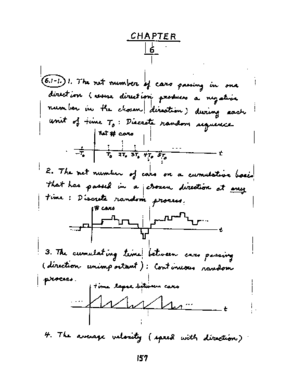 CHAPTER
6
6.1-1. 1. The net number of cars passing in one
direction (reverse direction produces a negative
number in the chosen direction) during each
unit of time T₀: Discrete random sequence
Net # cars
-T₀ T₀ 2T₀ 3T₀ 4T₀ 5T₀ t
2. The net number of cars on a cumulative basis
that has passed in a chosen direction at any
time: Discrete random process.
# cars
... t
3. The cumulating time between cars passing
(direction unimportant): Continuous random
process.
time lapse between cars
... t
4. The average velocity (speed with direction)
157